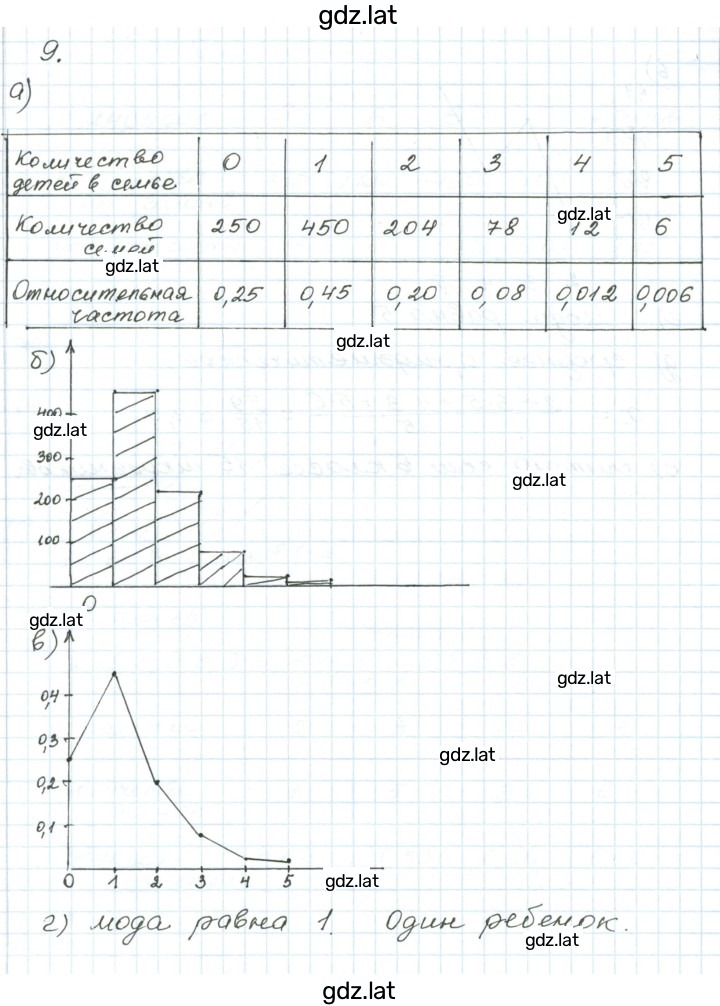 gdz.lat
9.
а)
Количество детей в семье 0 1 2 3 4 5
Количество семей 250 450 204 78 12 6
gdz.lat
gdz.lat
Относительная частота 0,25 0,45 0,20 0,08 0,012 0,006
gdz.lat
б)
400
gdz.lat
300
gdz.lat
200
100
gdz.lat
в)
gdz.lat
0,4
0,3
gdz.lat
0,2
0,1
0 1 2 3 4 5
gdz.lat
г) мода равна 1. Один ребенок.
gdz.lat
gdz.lat